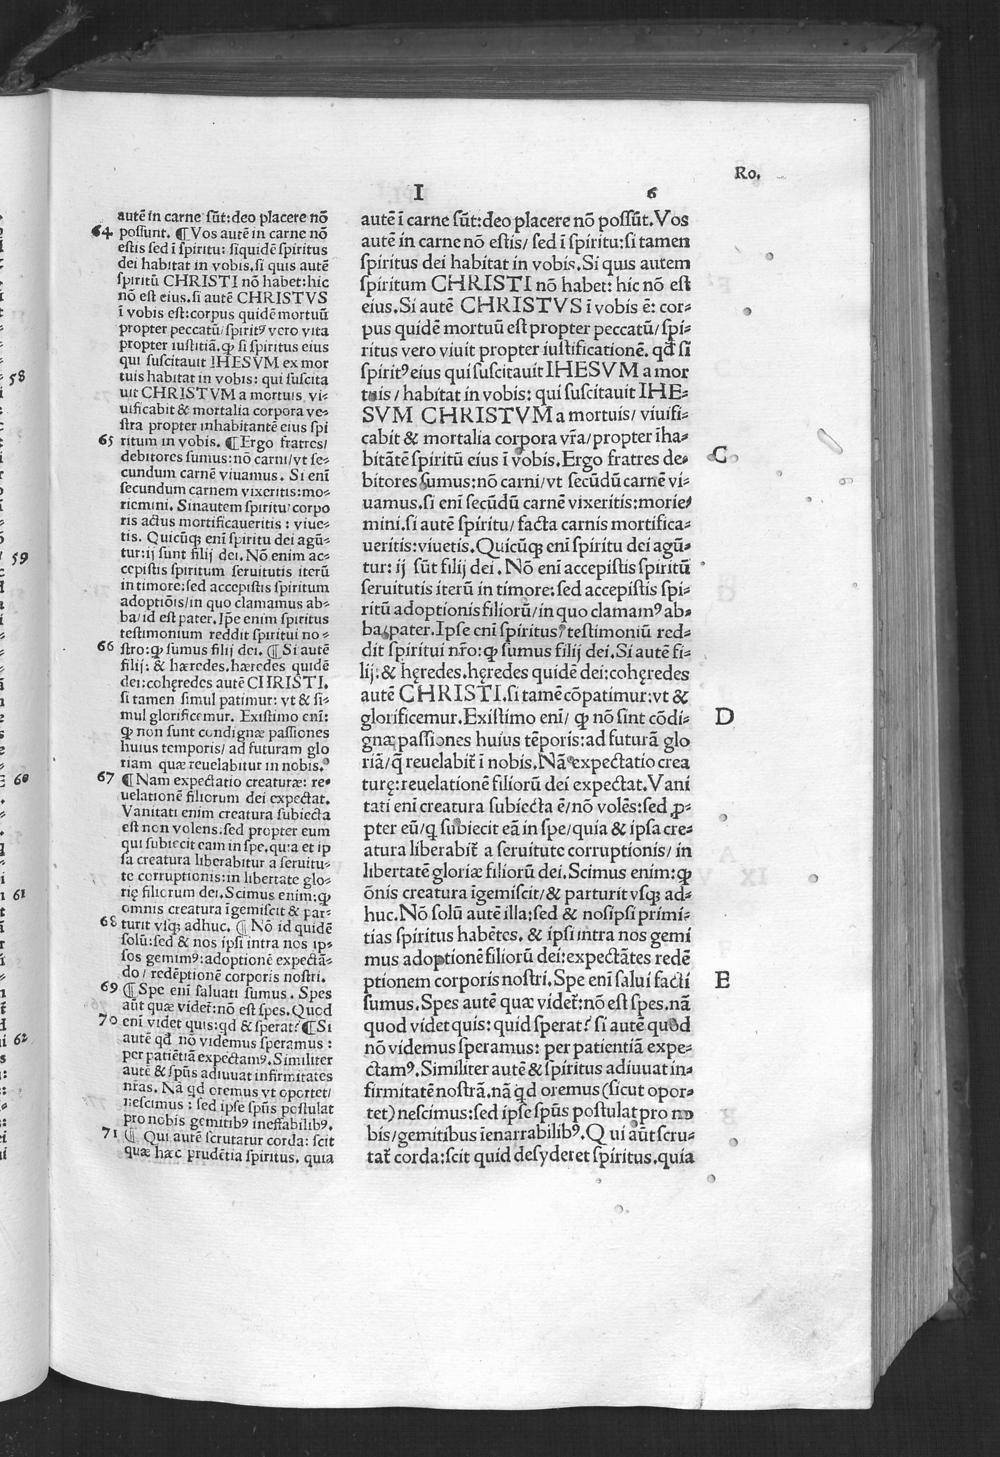 Ro.
I 6
autē in carne sūt:deo placere nō
64 possunt. ¶ Vos autē in carne nō
estis sed ī spiritu: siquidē spiritus
dei habitat in vobis.si quis autē
spiritū CHRISTI nō habet:hic
nō est eius.si autē CHRISTVS
ī vobis est:corpus quidē mortuū
propter peccatū/spiritꝰ vero vita
propter iustitiā.ꝙ si spiritus eius
qui suscitauit IHESVM ex mor
tuis habitat in vobis: qui suscita
uit CHRISTVM a mortuis, vi-
uificabit & mortalia corpora ve-
stra propter inhabitantē eius spi
65 ritum in vobis. ¶ Ergo fratres/
debitores sumus:nō carni/vt se-
cundum carnē viuamus. Si enī
secundum carnem vixeritis:mo-
riemini. Sinautem spiritu/corpo
ris actus mortificaueritis : viue-
tis. Quicūqꝫ enī spiritu dei agū-
tur:ij sunt filij dei. Nō enim ac-
cepistis spiritum seruitutis iterū
in timore:sed accepistis spiritum
adoptiōis/in quo clamamus ab-
ba/id est pater. Ip̄e enim spiritus
testimonium reddit spiritui no-
66 stro:ꝙ sumus filij dei. ¶ Si autē
filij: & hæredes.hæredes quidē
dei:cohęredes autē CHRISTI.
si tamen simul patimur: vt & si-
mul glorificemur. Existimo enī:
ꝙ non sunt condignæ passiones
huius temporis/ ad futuram glo
riam quæ reuelabitur in nobis.
67 ¶ Nam expectatio creaturæ: re-
uelationē filiorum dei expectat.
Vanitati enim creatura subiecta
est non volens:sed propter eum
qui subiecit eam in spe,quia et ip
sa creatura liberabitur a seruitu-
te corruptionis:in libertate glo-
rię filiorum dei.Scimus enim:ꝙ
omnis creatura īgemiscit & par-
68 turit vsqꝫ adhuc. ¶ Nō id quidē
solū:sed & nos ipsi intra nos ip-
sos gemimꝰ:adoptionē expectā-
do/ redēptionē corporis nostri.
69 ¶ Spe enī saluati sumus. Spes
aūt quæ videt̄:nō est spes.Quod
70 enī videt quis:qd & sperat? ¶ Si
autē qd̄ nō videmus speramus :
per patiētiā expectamꝰ.Similiter
autē & sp̄us adiuuat infirmitates
nr̄as. Nā qd oremus vt oportet/
nescimus : sed ipse sp̄us postulat
pro nobis gemitibꝰ ineffabilibꝰ.
71 ¶ Qui autē scrutatur corda: scit
quæ hæc prudētia spiritus, quia
autē ī carne sūt:deo placere nō possūt.Vos
autē in carne nō estis/ sed ī spiritu:si tamen
spiritus dei habitat in vobis.Si quis autem
spiritum CHRISTI nō habet: hic nō est
eius.Si autē CHRISTVS ī vobis ē: cor-
pus quidē mortuū est propter peccatū/spi-
ritus vero viuit propter iustificationē. qd̄ si
spiritꝰ eius qui suscitauit IHESVM a mor
tuis / habitat in vobis: qui suscitauit IHE-
SVM CHRISTVM a mortuis/ viuifi-
cabit & mortalia corpora vr̄a/propter īha-
bitātē spiritū eius ī vobis.Ergo fratres de- C
bitores sumus:nō carni/vt secūdū carnē vi-
uamus.si enī secūdū carnē vixeritis:morie-
mini.si autē spiritu/ facta carnis mortifica-
ueritis:viuetis.Quicūqꝫ enī spiritu dei agū-
tur: ij sūt filij dei. Nō enī accepistis spiritū
seruitutis iterū in timore:sed accepistis spi-
ritū adoptionis filiorū/in quo clamamꝰ ab-
ba/pater.Ipse enī spiritus/ testimoniū red-
dit spiritui nr̄o:ꝙ sumus filij dei.Si autē fi-
lij:& hęredes.hęredes quidē dei:cohęredes
autē CHRISTI.si tamē cōpatimur:vt &
glorificemur.Existimo enī/ ꝙ nō sint cōdi- D
gnæ passiones huius tēporis:ad futurā glo
riā/q̄ reuelabit̄ ī nobis.Nā expectatio crea
turę:reuelationē filiorū dei expectat.Vani
tati enī creatura subiecta ē/nō volēs:sed ꝓ-
pter eū/q̄ subiecit eā in spe/quia & ipsa cre-
atura liberabit̄ a seruitute corruptionis/ in
libertatē gloriæ filiorū dei.Scimus enim:ꝙ
ōnis creatura īgemiscit/& parturit vsqꝫ ad-
huc.Nō solū autē illa:sed & nosipsi primi-
tias spiritus habētes. & ipsi intra nos gemi
mus adoptionē filiorū dei:expectātes redē
ptionem corporis nostri.Spe enī salui facti E
sumus.Spes autē quæ videt̄:nō est spes.nā
quod videt quis: quid sperat? si autē quod
nō videmus speramus: per patientiā expe-
ctamꝰ.Similiter autē & spiritus adiuuat in-
firmitatē nostrā.nā qd oremus (sicut opor-
tet) nescimus:sed ipse sp̄us postulat pro no
bis/gemitibus īenarrabilibꝰ.Qui aūt scru-
tat̄ corda:scit quid desyderet spiritus.quia
58
59
60
61
62